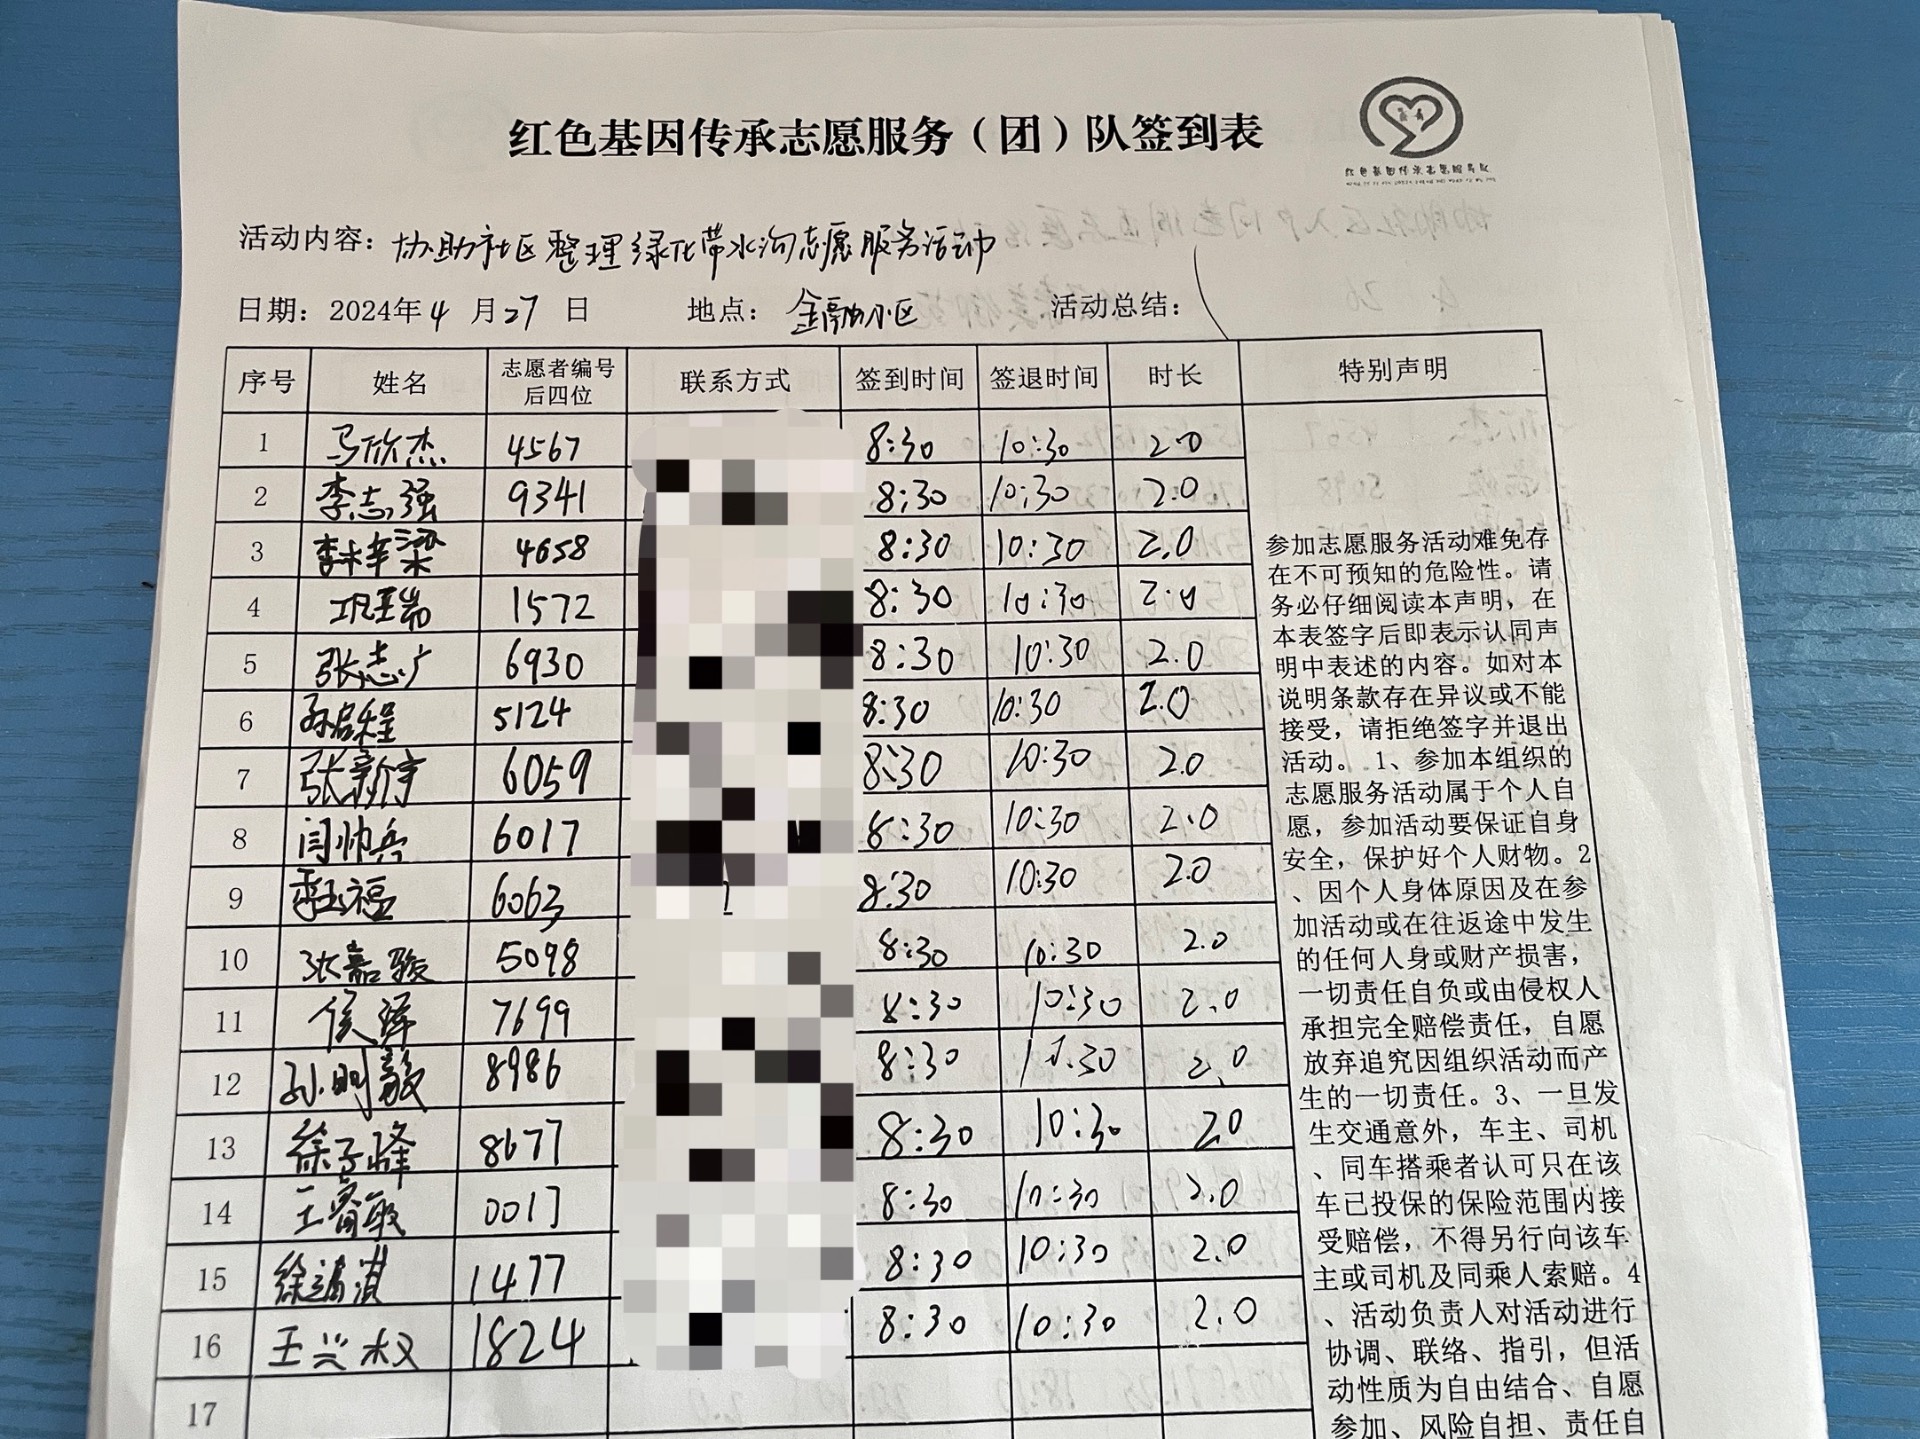 红色基因传承志愿服务（团）队签到表
红色基因传承志愿服务队
活动内容：协助社区整理绿化带水沟志愿服务活动
日期：2024年4月27日 地点：金融小区 活动总结：
序号 姓名 志愿者编号后四位 联系方式 签到时间 签退时间 时长 特别声明
1 马欣杰 4567 8:30 10:30 2.0
2 李志强 9341 8:30 10:30 2.0
3 4658 8:30 10:30 2.0
4 1572 8:30 10:30 2.0
5 张志广 6930 8:30 10:30 2.0
6 孙启程 5124 8:30 10:30 2.0
7 张新宇 6059 8:30 10:30 2.0
8 闫帅兵 6017 8:30 10:30 2.0
9 季玉福 6063 8:30 10:30 2.0
10 张嘉骏 5098 8:30 10:30 2.0
11 侯泽 7699 8:30 10:30 2.0
12 孙明毅 8986 8:30 2.0
13 徐子峰 8677 8:30 10:30 2.0
14 王睿敏 0017 8:30 10:30 2.0
15 1477 8:30 10:30 2.0
16 王兴权 1824 8:30 10:30 2.0
17
参加志愿服务活动难免存
在不可预知的危险性。请
务必仔细阅读本声明，在
本表签字后即表示认同声
明中表述的内容。如对本
说明条款存在异议或不能
接受，请拒绝签字并退出
活动。1、参加本组织的
志愿服务活动属于个人自
愿，参加活动要保证自身
安全，保护好个人财物。2
、因个人身体原因及在参
加活动或在往返途中发生
的任何人身或财产损害，
一切责任自负或由侵权人
承担完全赔偿责任，自愿
放弃追究因组织活动而产
生的一切责任。3、一旦发
生交通意外，车主、司机
、同车搭乘者认可只在该
车已投保的保险范围内接
受赔偿，不得另行向该车
主或司机及同乘人索赔。4
、活动负责人对活动进行
协调、联络、指引，但活
动性质为自由结合、自愿
参加、风险自担、责任自